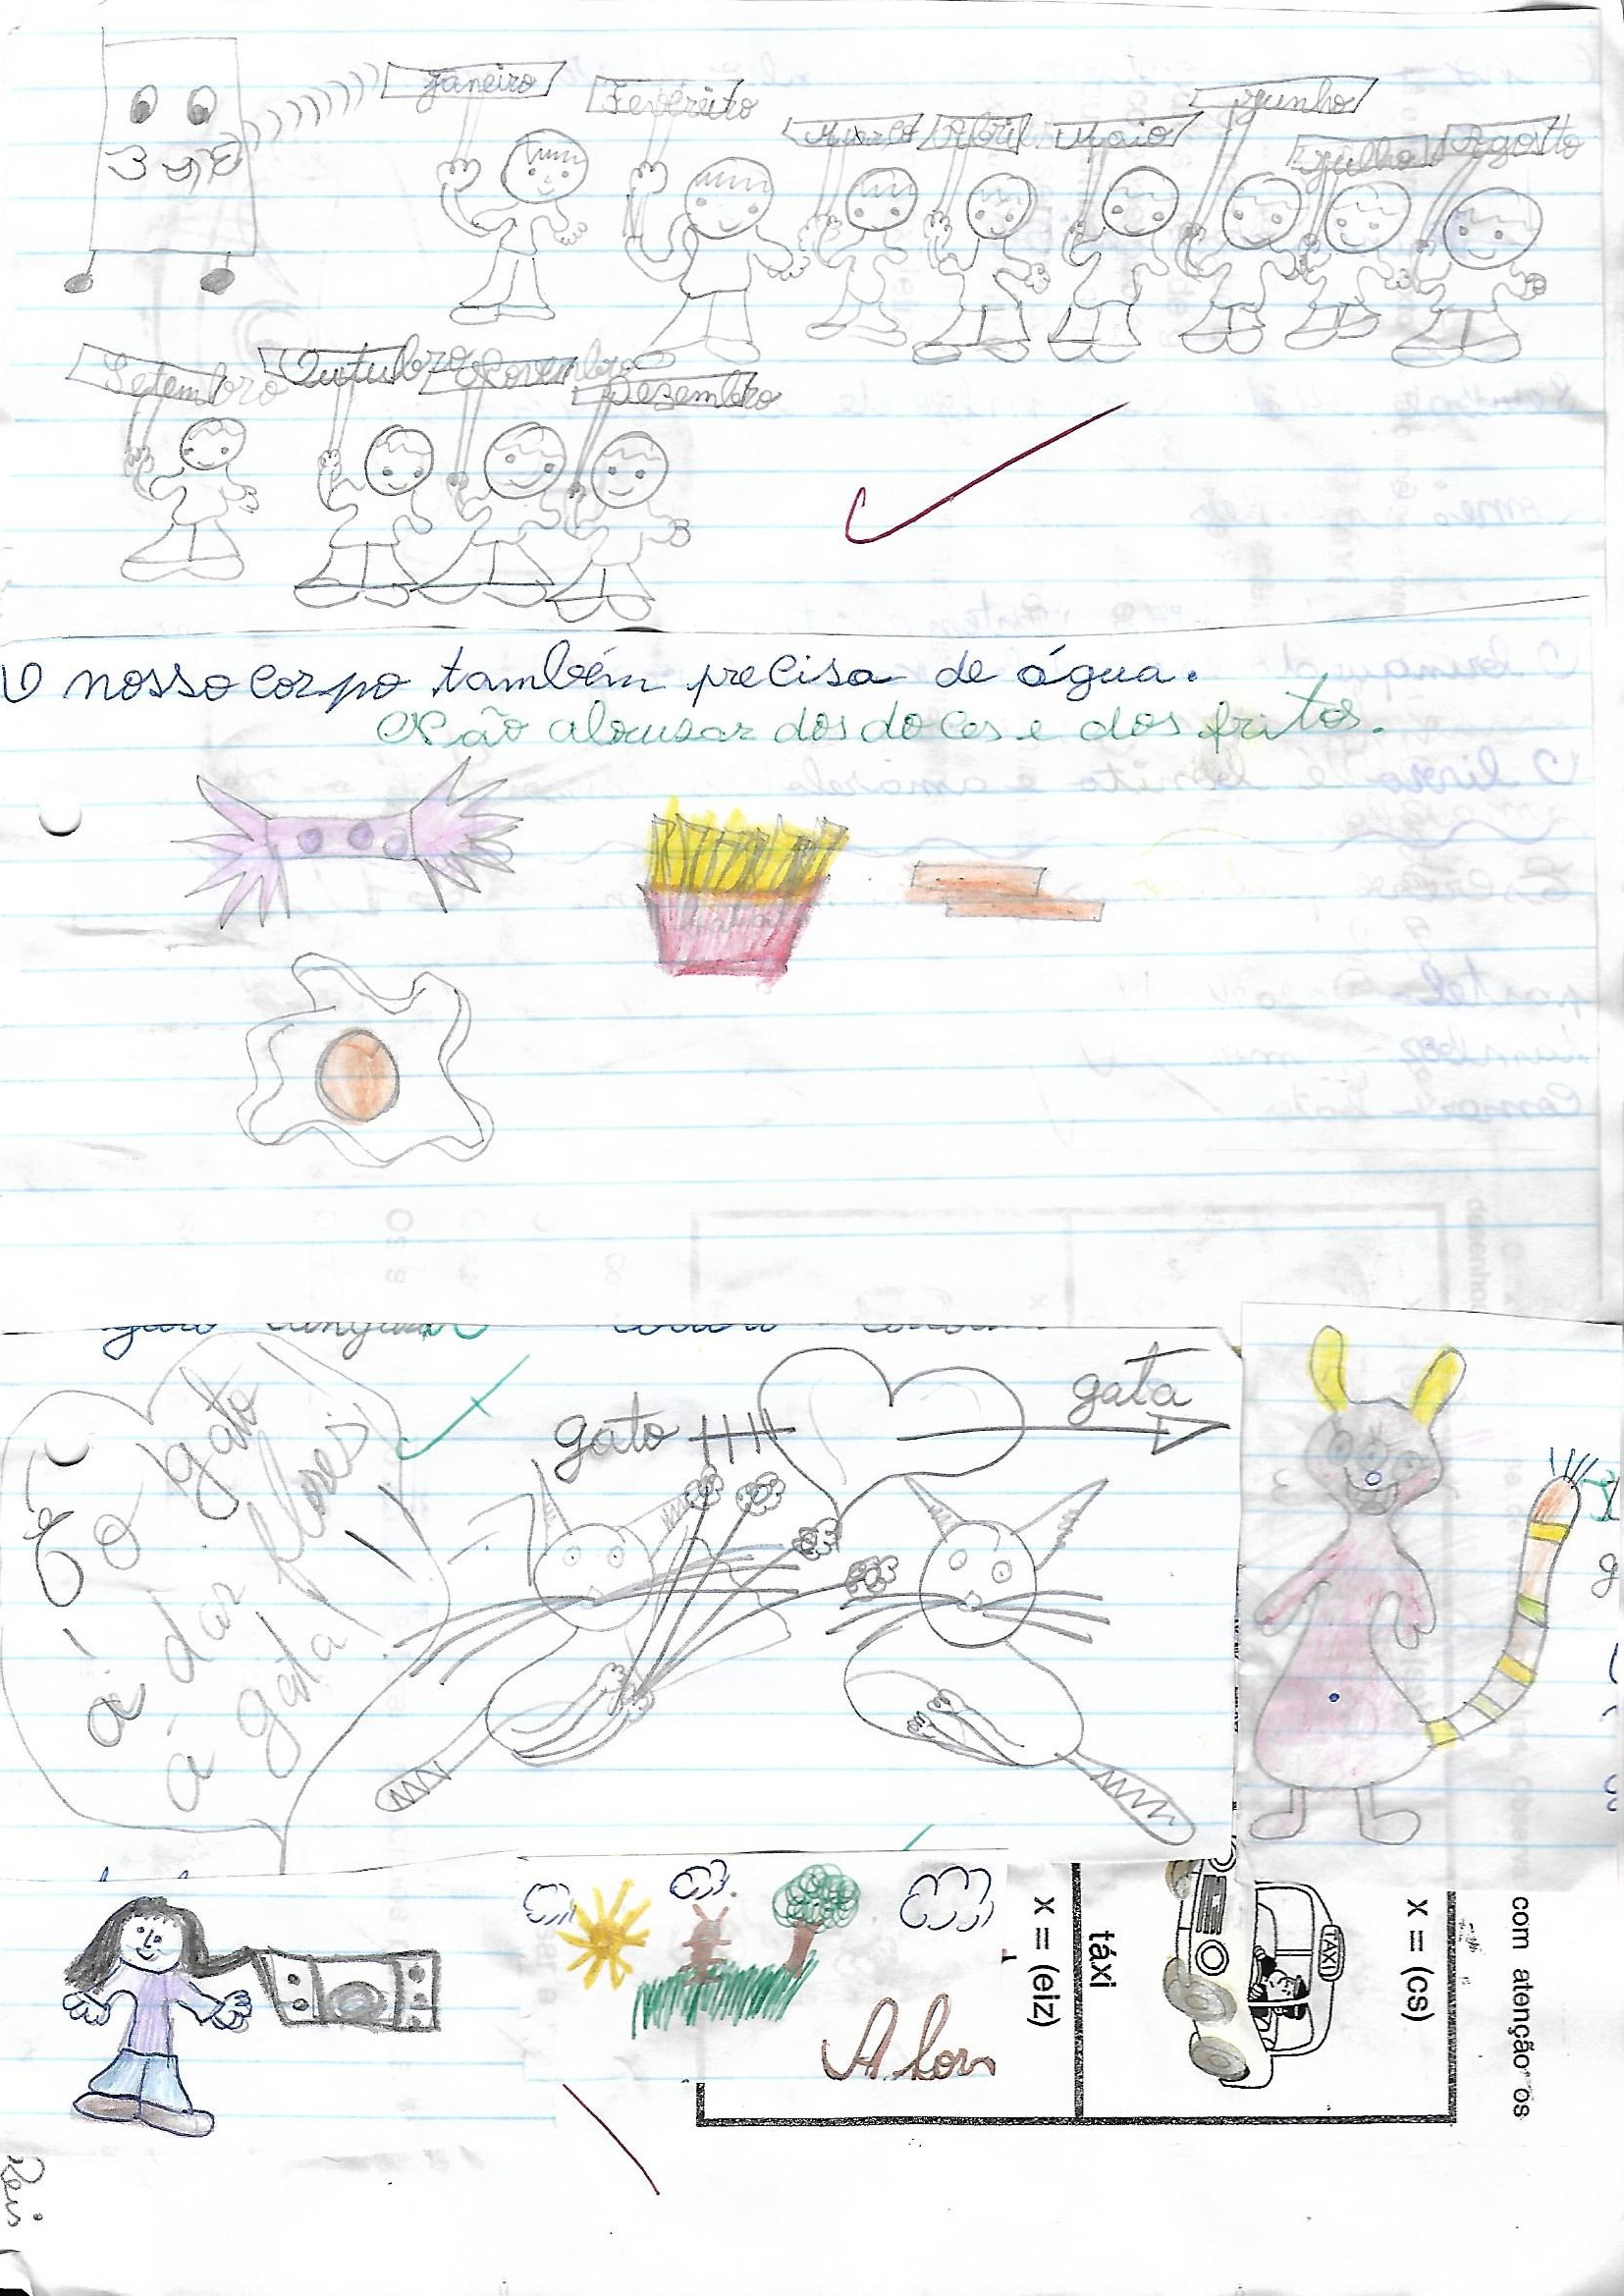 Janeiro
Fevereiro
Março
Abril
Maio
Junho
Julho
Agosto
Setembro
Outubro
Novembro
Dezembro
O nosso corpo também precisa de água.
Não abusar dos doces e dos fritos.
gato
gata
E o gato
a dar flores
à gata!!!
x = (cs)
táxi
TÁXI
x = (eiz)
com atenção os
Reis